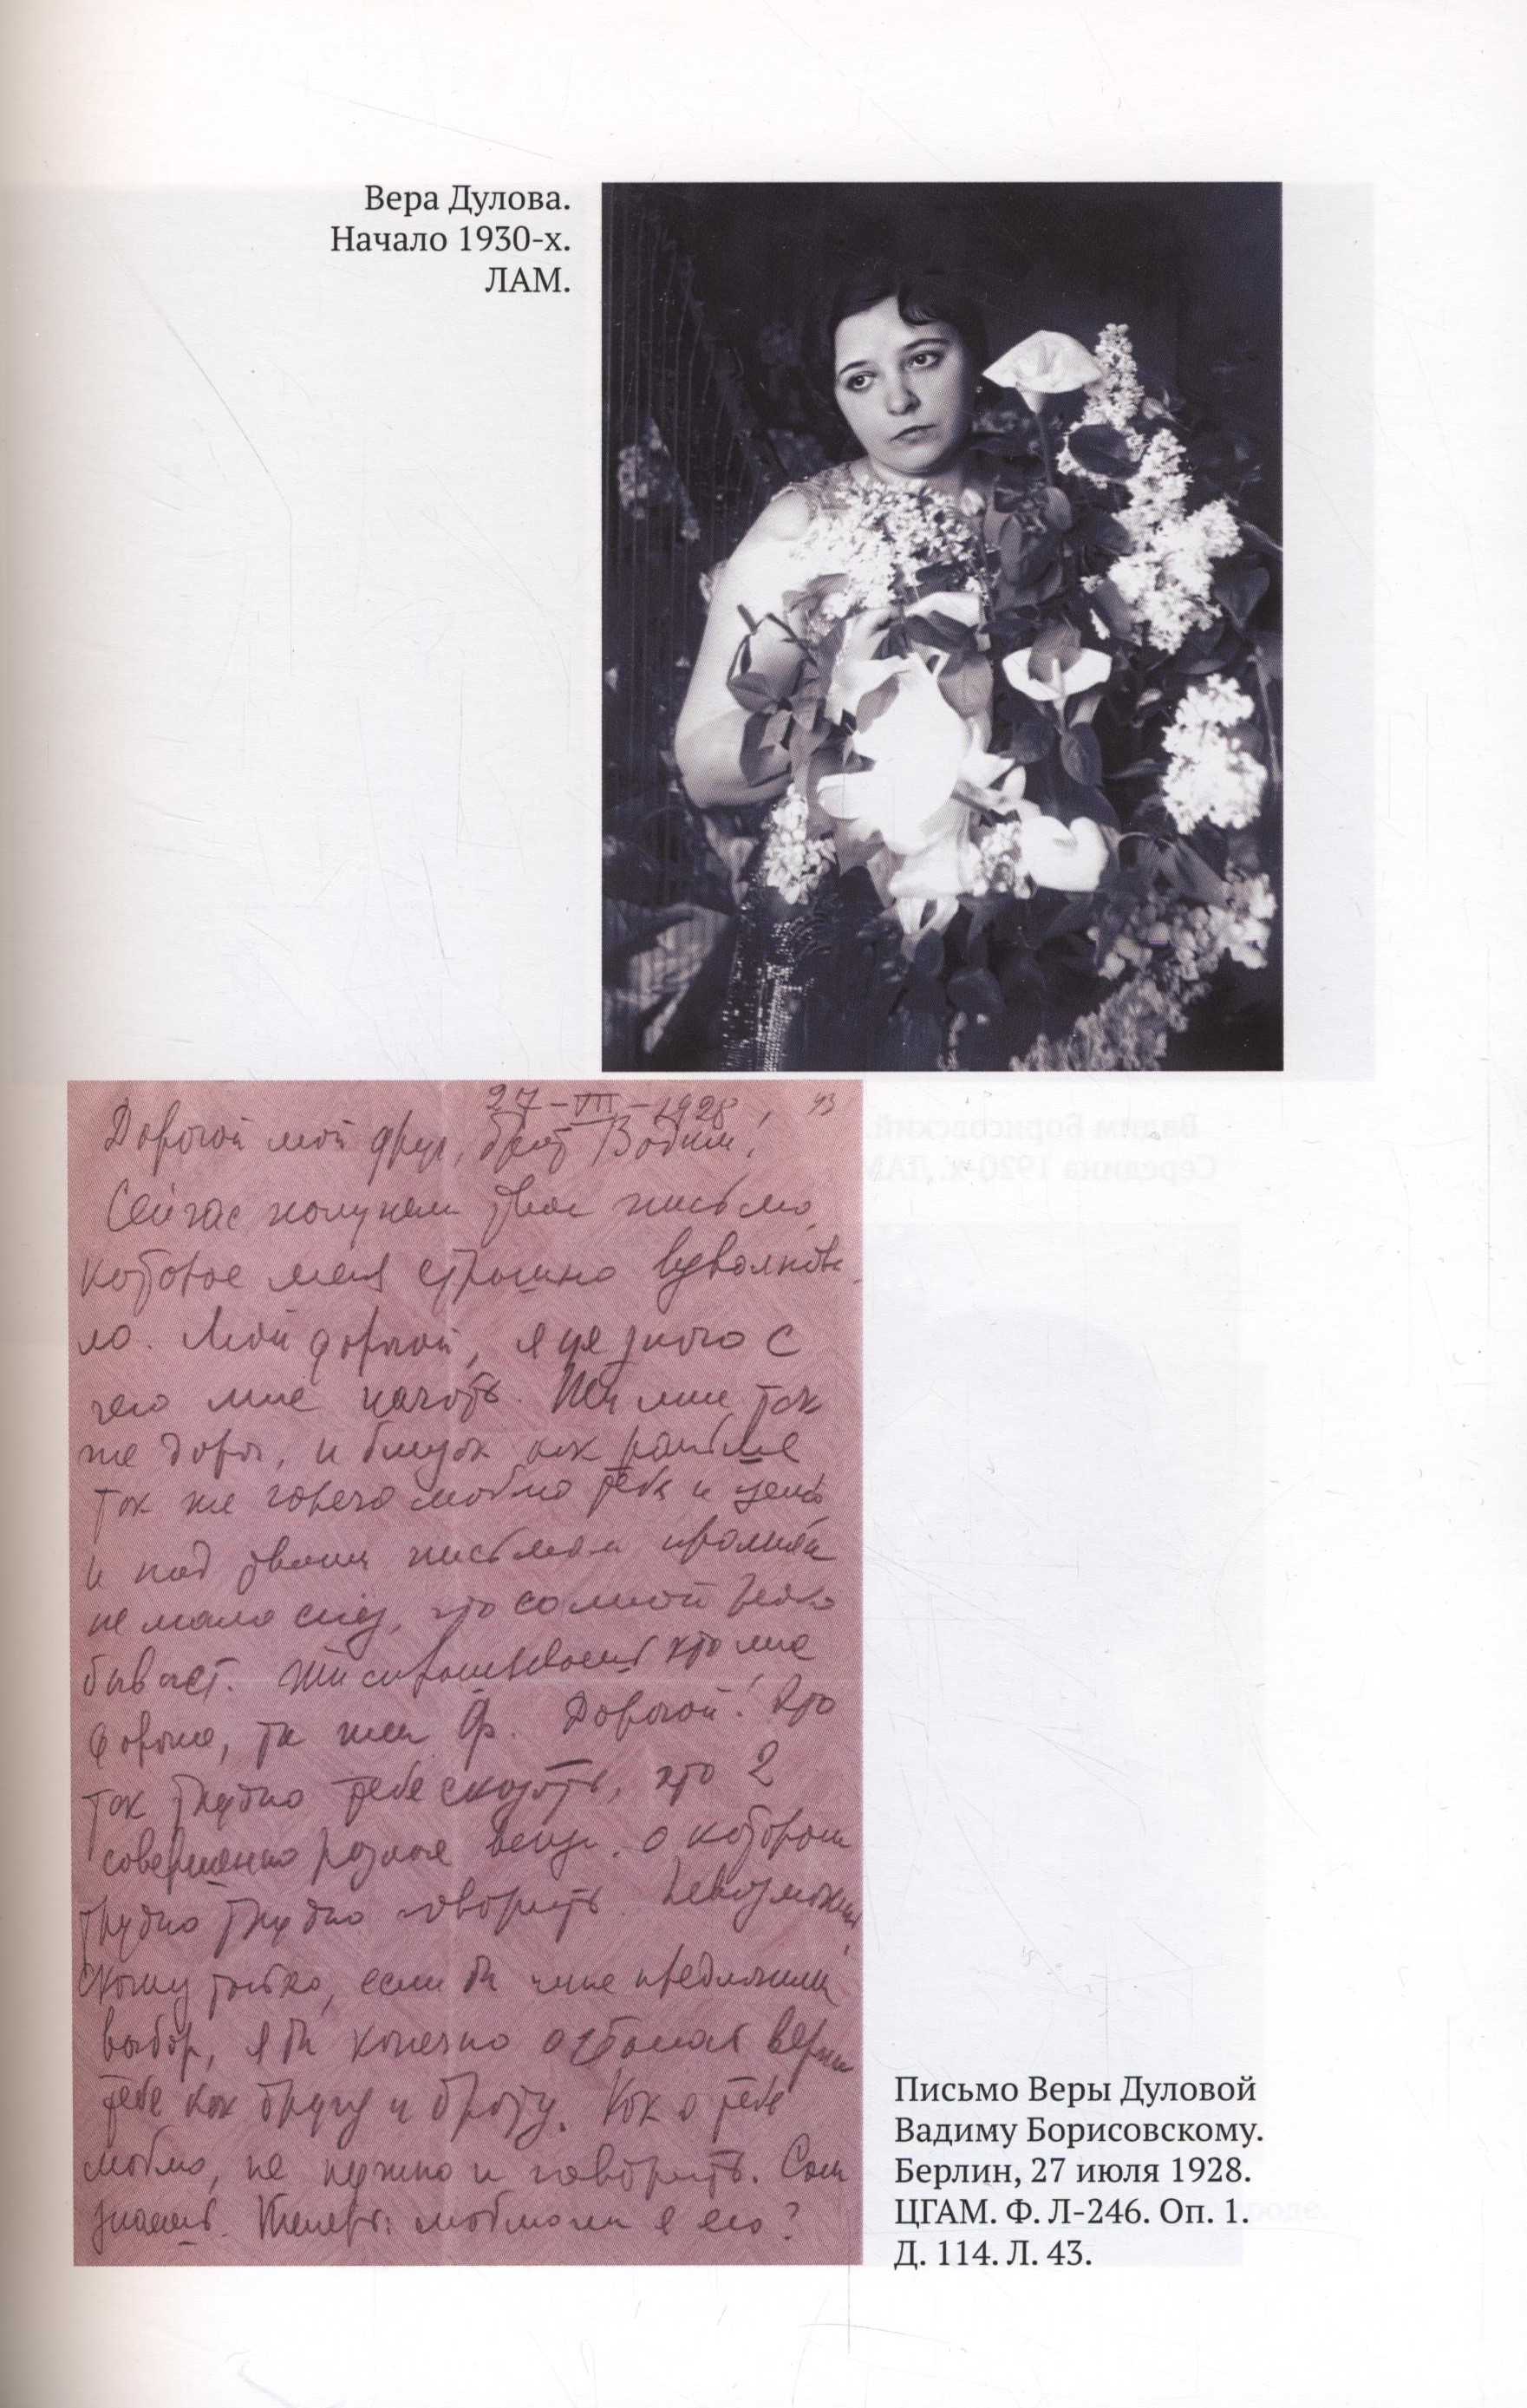 Вера Дулова.
Начало 1930-х.
ЛАМ.
27-VII-1928
43
Дорогой мой друг, брат Вадим!
Сейчас получила твое письмо,
которое меня страшно взволнова-
ло. Мой дорогой, я не знаю с
чего мне начать. Ты мне так
же дорог, и близок как раньше
так же горячо люблю тебя и ценю
и над твоим письмом пролила
не мало слез, что со мной редко
бывает. Ты спрашиваешь кто мне
дороже, ты или Ф. Дорогой! Это
так трудно тебе сказать, это 2
совершенно разные вещи о которых
трудно трудно говорить. Невозможно,
скажу только, если бы мне предложили
выбор, я бы конечно осталась верна
тебе как другу и брату. Как я тебя
люблю, не нужно и говорить. Сам
знаешь. Теперь: люблю ли я его?
Письмо Веры Дуловой
Вадиму Борисовскому.
Берлин, 27 июля 1928.
ЦГАМ. Ф. Л-246. Оп. 1.
Д. 114. Л. 43.